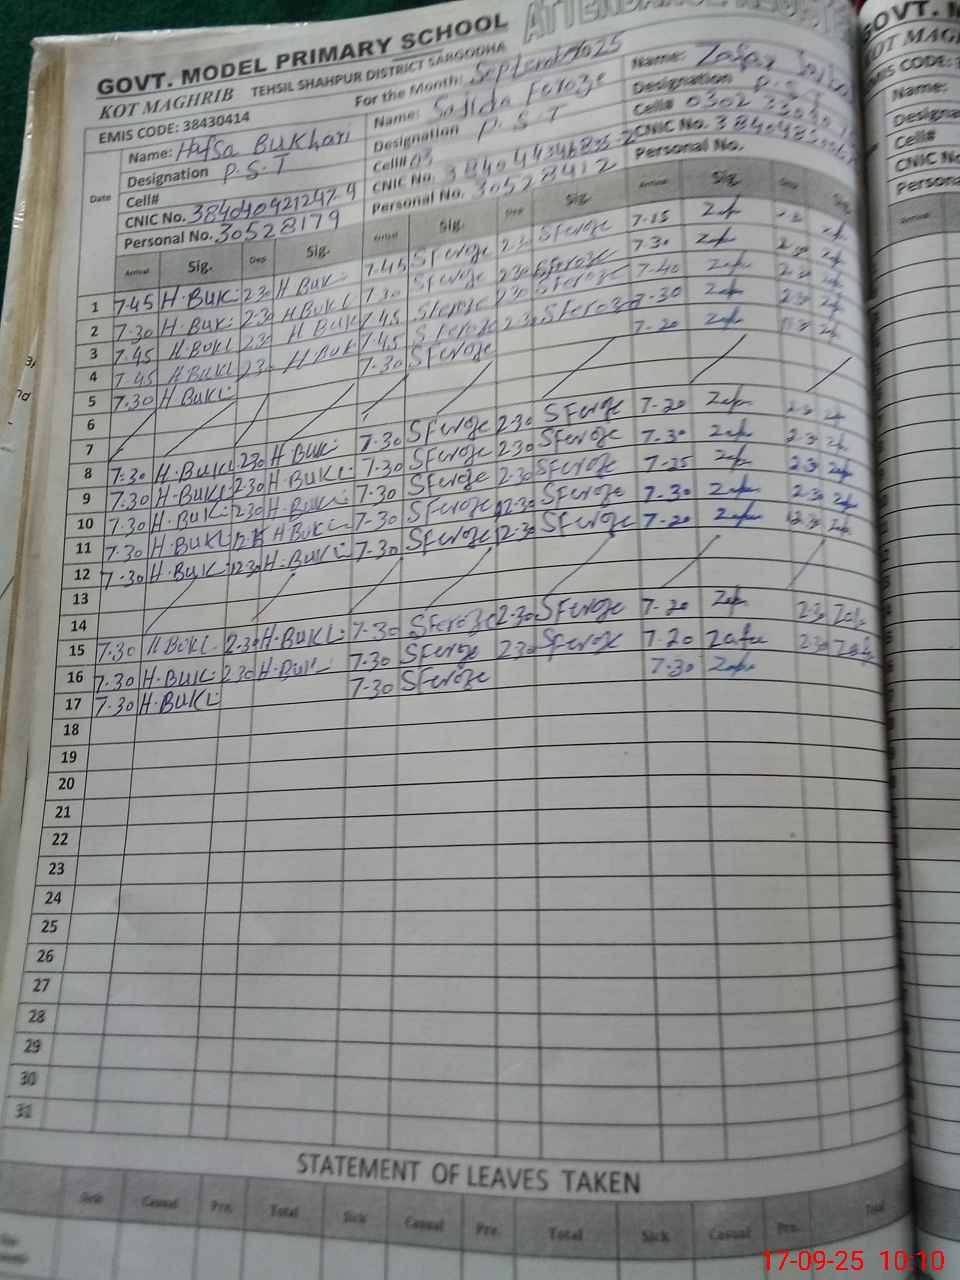 GOVT. MODEL PRIMARY SCHOOL
KOT MAGHRIB TEHSIL SHAHPUR DISTRICT SARGODHA
EMIS CODE: 38430414 For the Month: September 2025
Name: Hafsa Bukhari Name: Sajida Feroze Name: Zafar
Designation P.S.T Designation P.S.T Designation P.S.T
Cell# Cell# 03 Cell# 0302
CNIC No. CNIC No. CNIC No.
Personal No. 30528179 Personal No. 30528412 Personal No.
Date Arrival Sig. Dep Sig. Arrival Sig. Dep Sig. Arrival Sig. Dep Sig.
1 7-45 H.BUK: 2.30 H BUK: 7.45 SFeroze 2.30 SFeroze 7-15 Zaf
2 7-30 H.BUK: 2-30 H BUKL 7.30 SFeroze 2.30 SFeroze 7.30 Zaf 2.30 Zaf
3 7-45 H.BUKL 2.30 H BUKL 7.45 SFeroze 2.30 SFeroze 7-40 Zaf 2.30 Zaf
4 7-45 H BUKL 2.30 H BUK 7.45 SFeroze 2.30 SFeroze 7-30 Zaf 2.30 Zaf
5 7.30 H BUKL: 7-30 SFeroze 7-20 Zaf
6
7
8 7-30 H.BUKL 2.30 H BUK: 7-30 SFeroze 2-30 SFeroze 7-20 Zaf 2-30 Zaf
9 7.30 H.BUKL: 2.30 H.BUKL: 7-30 SFeroze 2-30 SFeroze 7-30 Zaf 2-30 Zaf
10 7-30 H.BUKL: 2.30 H.BUKL: 7-30 SFeroze 2-30 SFeroze 7-25 Zaf 2-30 Zaf
11 7-30 H.BUKL H BUKL: 7-30 SFeroze 12-30 SFeroze 7.30 Zaf 2-30 Zaf
12 7-30 H.BUK: 12.30 H.BUKL: 7-30 SFeroze 12-30 SFeroze 7-20 Zaf 12-30 Zaf
13
14
15 7-30 H BUKL. 2-30 H.BUKL: 7-30 SFeroze 2-30 SFeroze 7-20 Zaf 2-30 Zafr
16 7-30 H.BUK: 2.30 H.BUK: 7-30 SFeroze 2.30 SFeroze 7-20 Zafr 2.30 Zafr
17 7-30 H.BUKL: 7-30 SFeroze 7-30 Zafr
18
19
20
21
22
23
24
25
26
27
28
29
30
31
STATEMENT OF LEAVES TAKEN
Sick Casual Pre. Total Sick Casual Pre. Total Sick Casual Pre. Total
GOVT. M
KOT MAG
EMIS CODE:
Name:
Designa
Cell#
CNIC No
Persona
Arrival
17-09-25 10:10